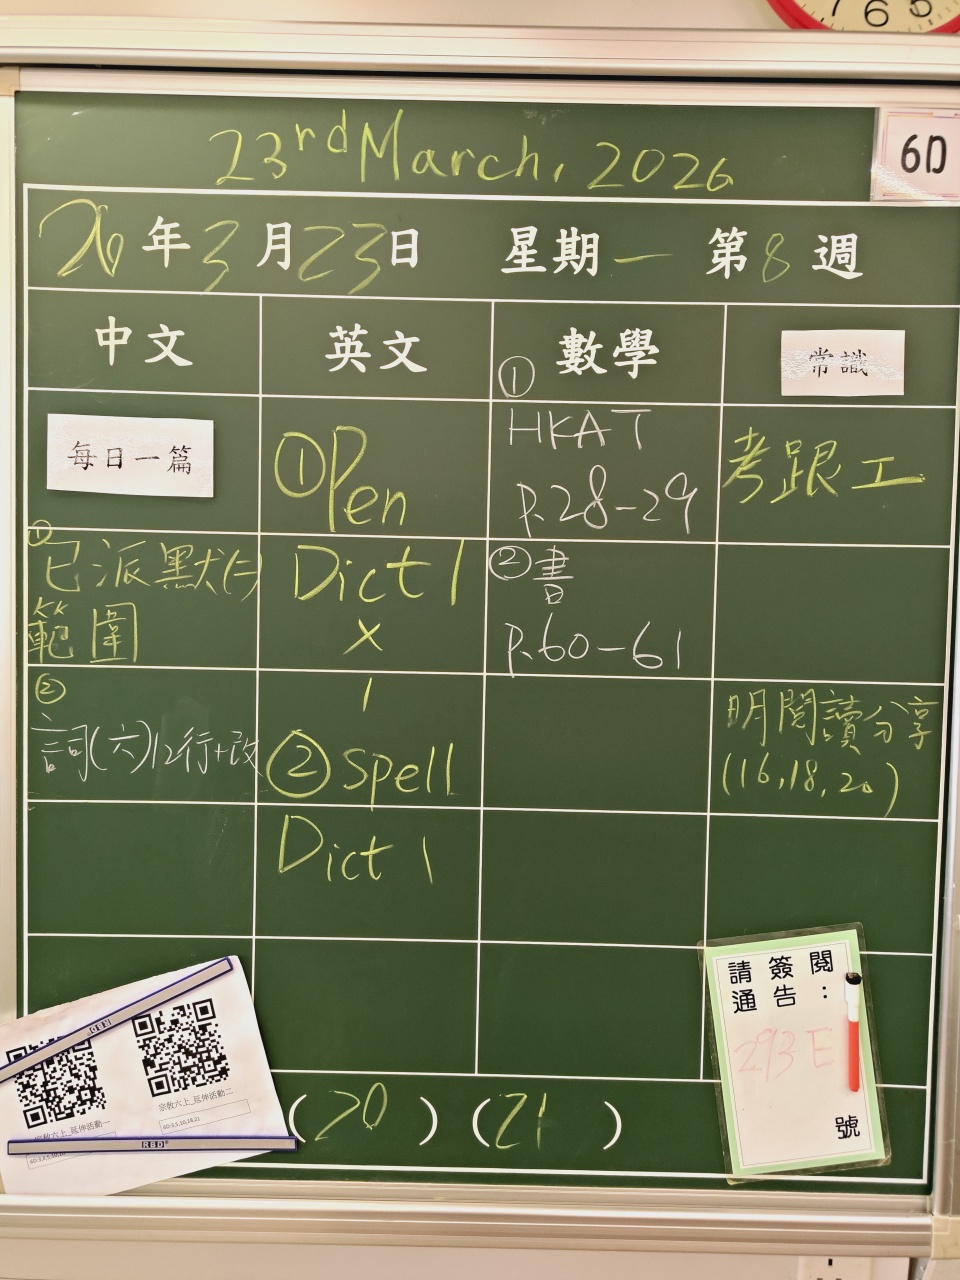 7 6 5
23rd March, 2026
6D
26年3月23日 星期一 第8週
中文
英文
數學
常識
每日一篇
① 已派默(二)
範圍
②
詞(六)12行+改
① Pen
Dict 1
×
1
② Spell
Dict 1
①
HKAT
P.28-29
② 書
P.60-61
考跟工
明閱讀分享
(16,18,20)
請簽閱:
通告
293E
號
RBD
宗教六上_延伸活動一
宗教六上_延伸活動二
RBD
(20)(21)